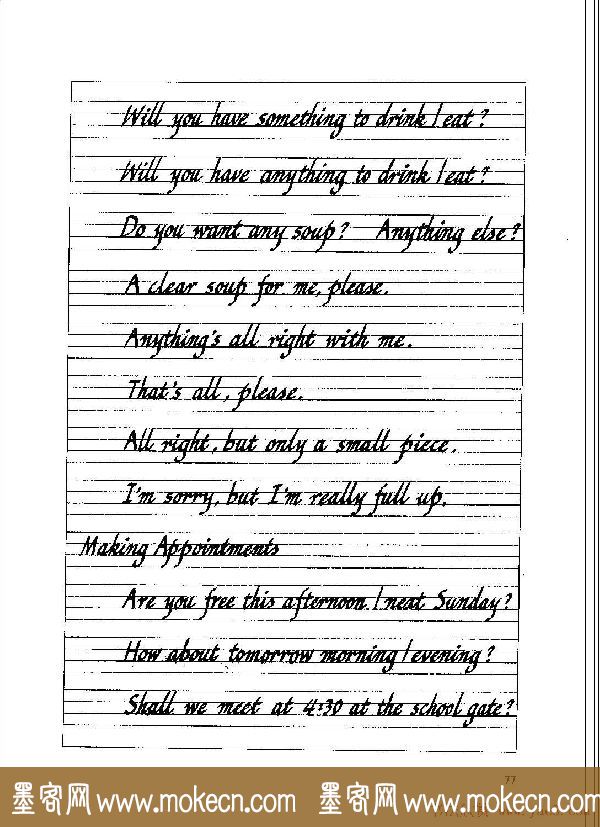 Will you have something to drink / eat?
Will you have anything to drink / eat?
Do you want any soup? Anything else?
A clear soup for me, please.
Anything's all right with me.
That's all, please.
All right, but only a small piece.
I'm sorry, but I'm really full up.
Making Appointments
Are you free this afternoon / next Sunday?
How about tomorrow morning / evening?
Shall we meet at 4:30 at the school gate?
77
墨客网 www.mokecn.com 墨客网 www.mokecn.com